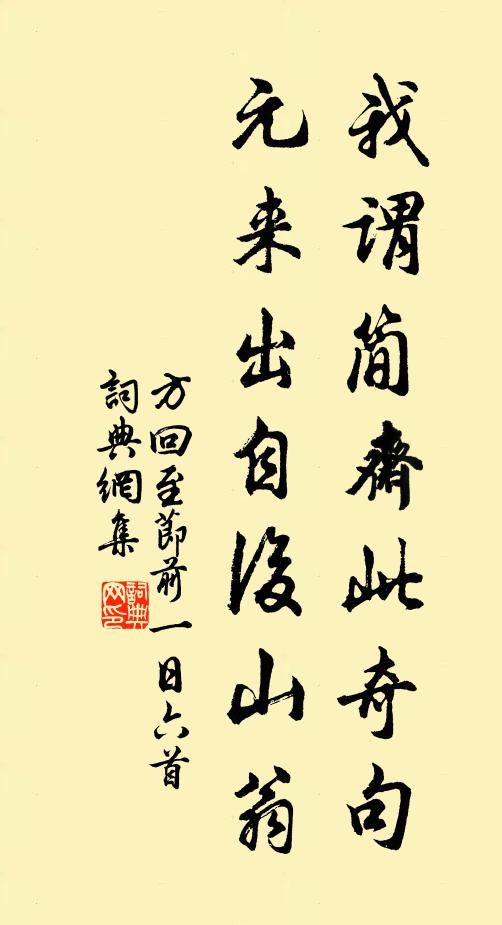 我谓简斋此奇句
元来出自后山翁
方回至節前一日六首
詞典網集
詞典網印